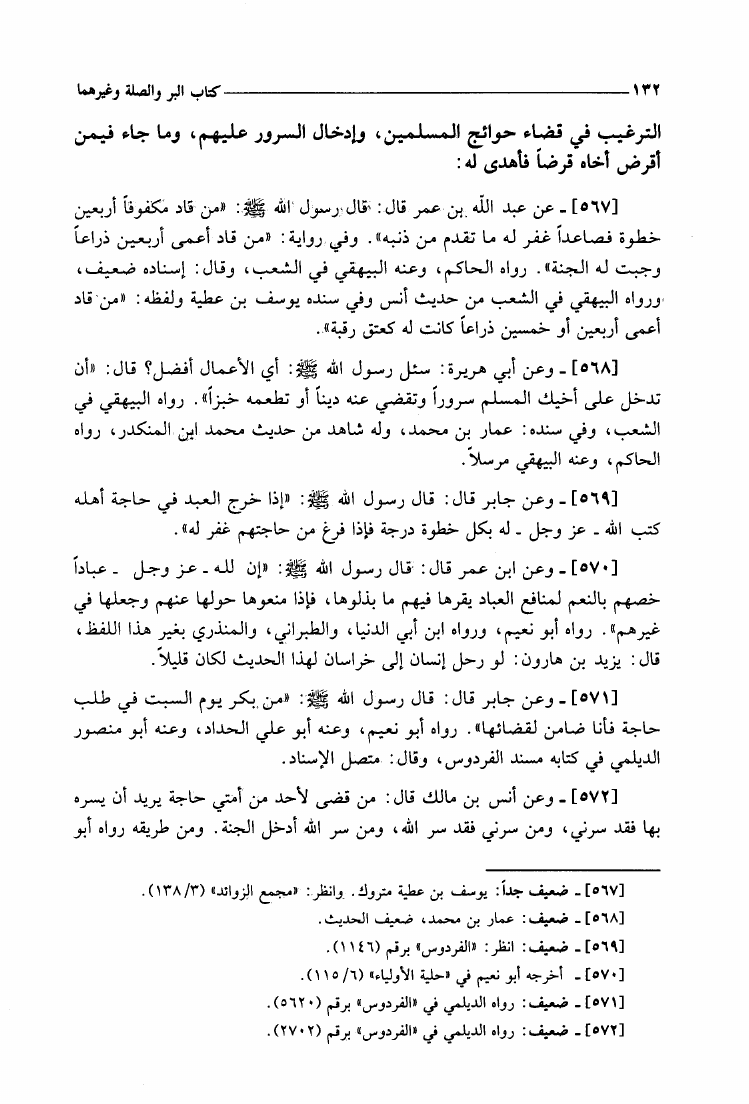 ١٣٢ كتاب البر والصلة وغيرهما
الترغيب في قضاء حوائج المسلمين، وإدخال السرور عليهم، وما جاء فيمن
أقرض أخاه قرضاً فأهدى له:
[٥٦٧] ـ عن عبد الله بن عمر قال: قال رسول الله ﷺ: «من قاد مكفوفاً أربعين
خطوة فصاعداً غفر له ما تقدم من ذنبه». وفي رواية: «من قاد أعمى أربعين ذراعاً
وجبت له الجنة». رواه الحاكم، وعنه البيهقي في الشعب، وقال: إسناده ضعيف،
ورواه البيهقي في الشعب من حديث أنس وفي سنده يوسف بن عطية ولفظه: «من قاد
أعمى أربعين أو خمسين ذراعاً كانت له كعتق رقبة».
[٥٦٨] ـ وعن أبي هريرة: سئل رسول الله ﷺ: أي الأعمال أفضل؟ قال: «أن
تدخل على أخيك المسلم سروراً وتقضي عنه ديناً أو تطعمه خبزاً». رواه البيهقي في
الشعب، وفي سنده: عمار بن محمد، وله شاهد من حديث محمد ابن المنكدر، رواه
الحاكم، وعنه البيهقي مرسلاً.
[٥٦٩] ـ وعن جابر قال: قال رسول الله ﷺ: «إذا خرج العبد في حاجة أهله
كتب الله ـ عز وجل ـ له بكل خطوة درجة فإذا فرغ من حاجتهم غفر له».
[٥٧٠] ـ وعن ابن عمر قال: قال رسول الله ﷺ: «إن لله ـ عز وجل ـ عباداً
خصهم بالنعم لمنافع العباد يقرها فيهم ما بذلوها، فإذا منعوها حولها عنهم وجعلها في
غيرهم». رواه أبو نعيم، ورواه ابن أبي الدنيا، والطبراني، والمنذري بغير هذا اللفظ،
قال: يزيد بن هارون: لو رحل إنسان إلى خراسان لهذا الحديث لكان قليلاً.
[٥٧١] ـ وعن جابر قال: قال رسول الله ﷺ: «من بكر يوم السبت في طلب
حاجة فأنا ضامن لقضائها». رواه أبو نعيم، وعنه أبو علي الحداد، وعنه أبو منصور
الديلمي في كتابه مسند الفردوس، وقال: متصل الإسناد.
[٥٧٢] ـ وعن أنس بن مالك قال: من قضى لأحد من أمتي حاجة يريد أن يسره
بها فقد سرني، ومن سرني فقد سر الله، ومن سر الله أدخل الجنة. ومن طريقه رواه أبو
[٥٦٧] ـ ضعيف جداً: يوسف بن عطية متروك. وانظر: «مجمع الزوائد» (١٣٨/٣).
[٥٦٨] ـ ضعيف: عمار بن محمد، ضعيف الحديث.
[٥٦٩] ـ ضعيف: انظر: «الفردوس» برقم (١١٤٦).
[٥٧٠] ـ أخرجه أبو نعيم في «حلية الأولياء» (١١٥/٦).
[٥٧١] ـ ضعيف: رواه الديلمي في «الفردوس» برقم (٥٦٢٠).
[٥٧٢] ـ ضعيف: رواه الديلمي في «الفردوس» برقم (٢٧٠٢).